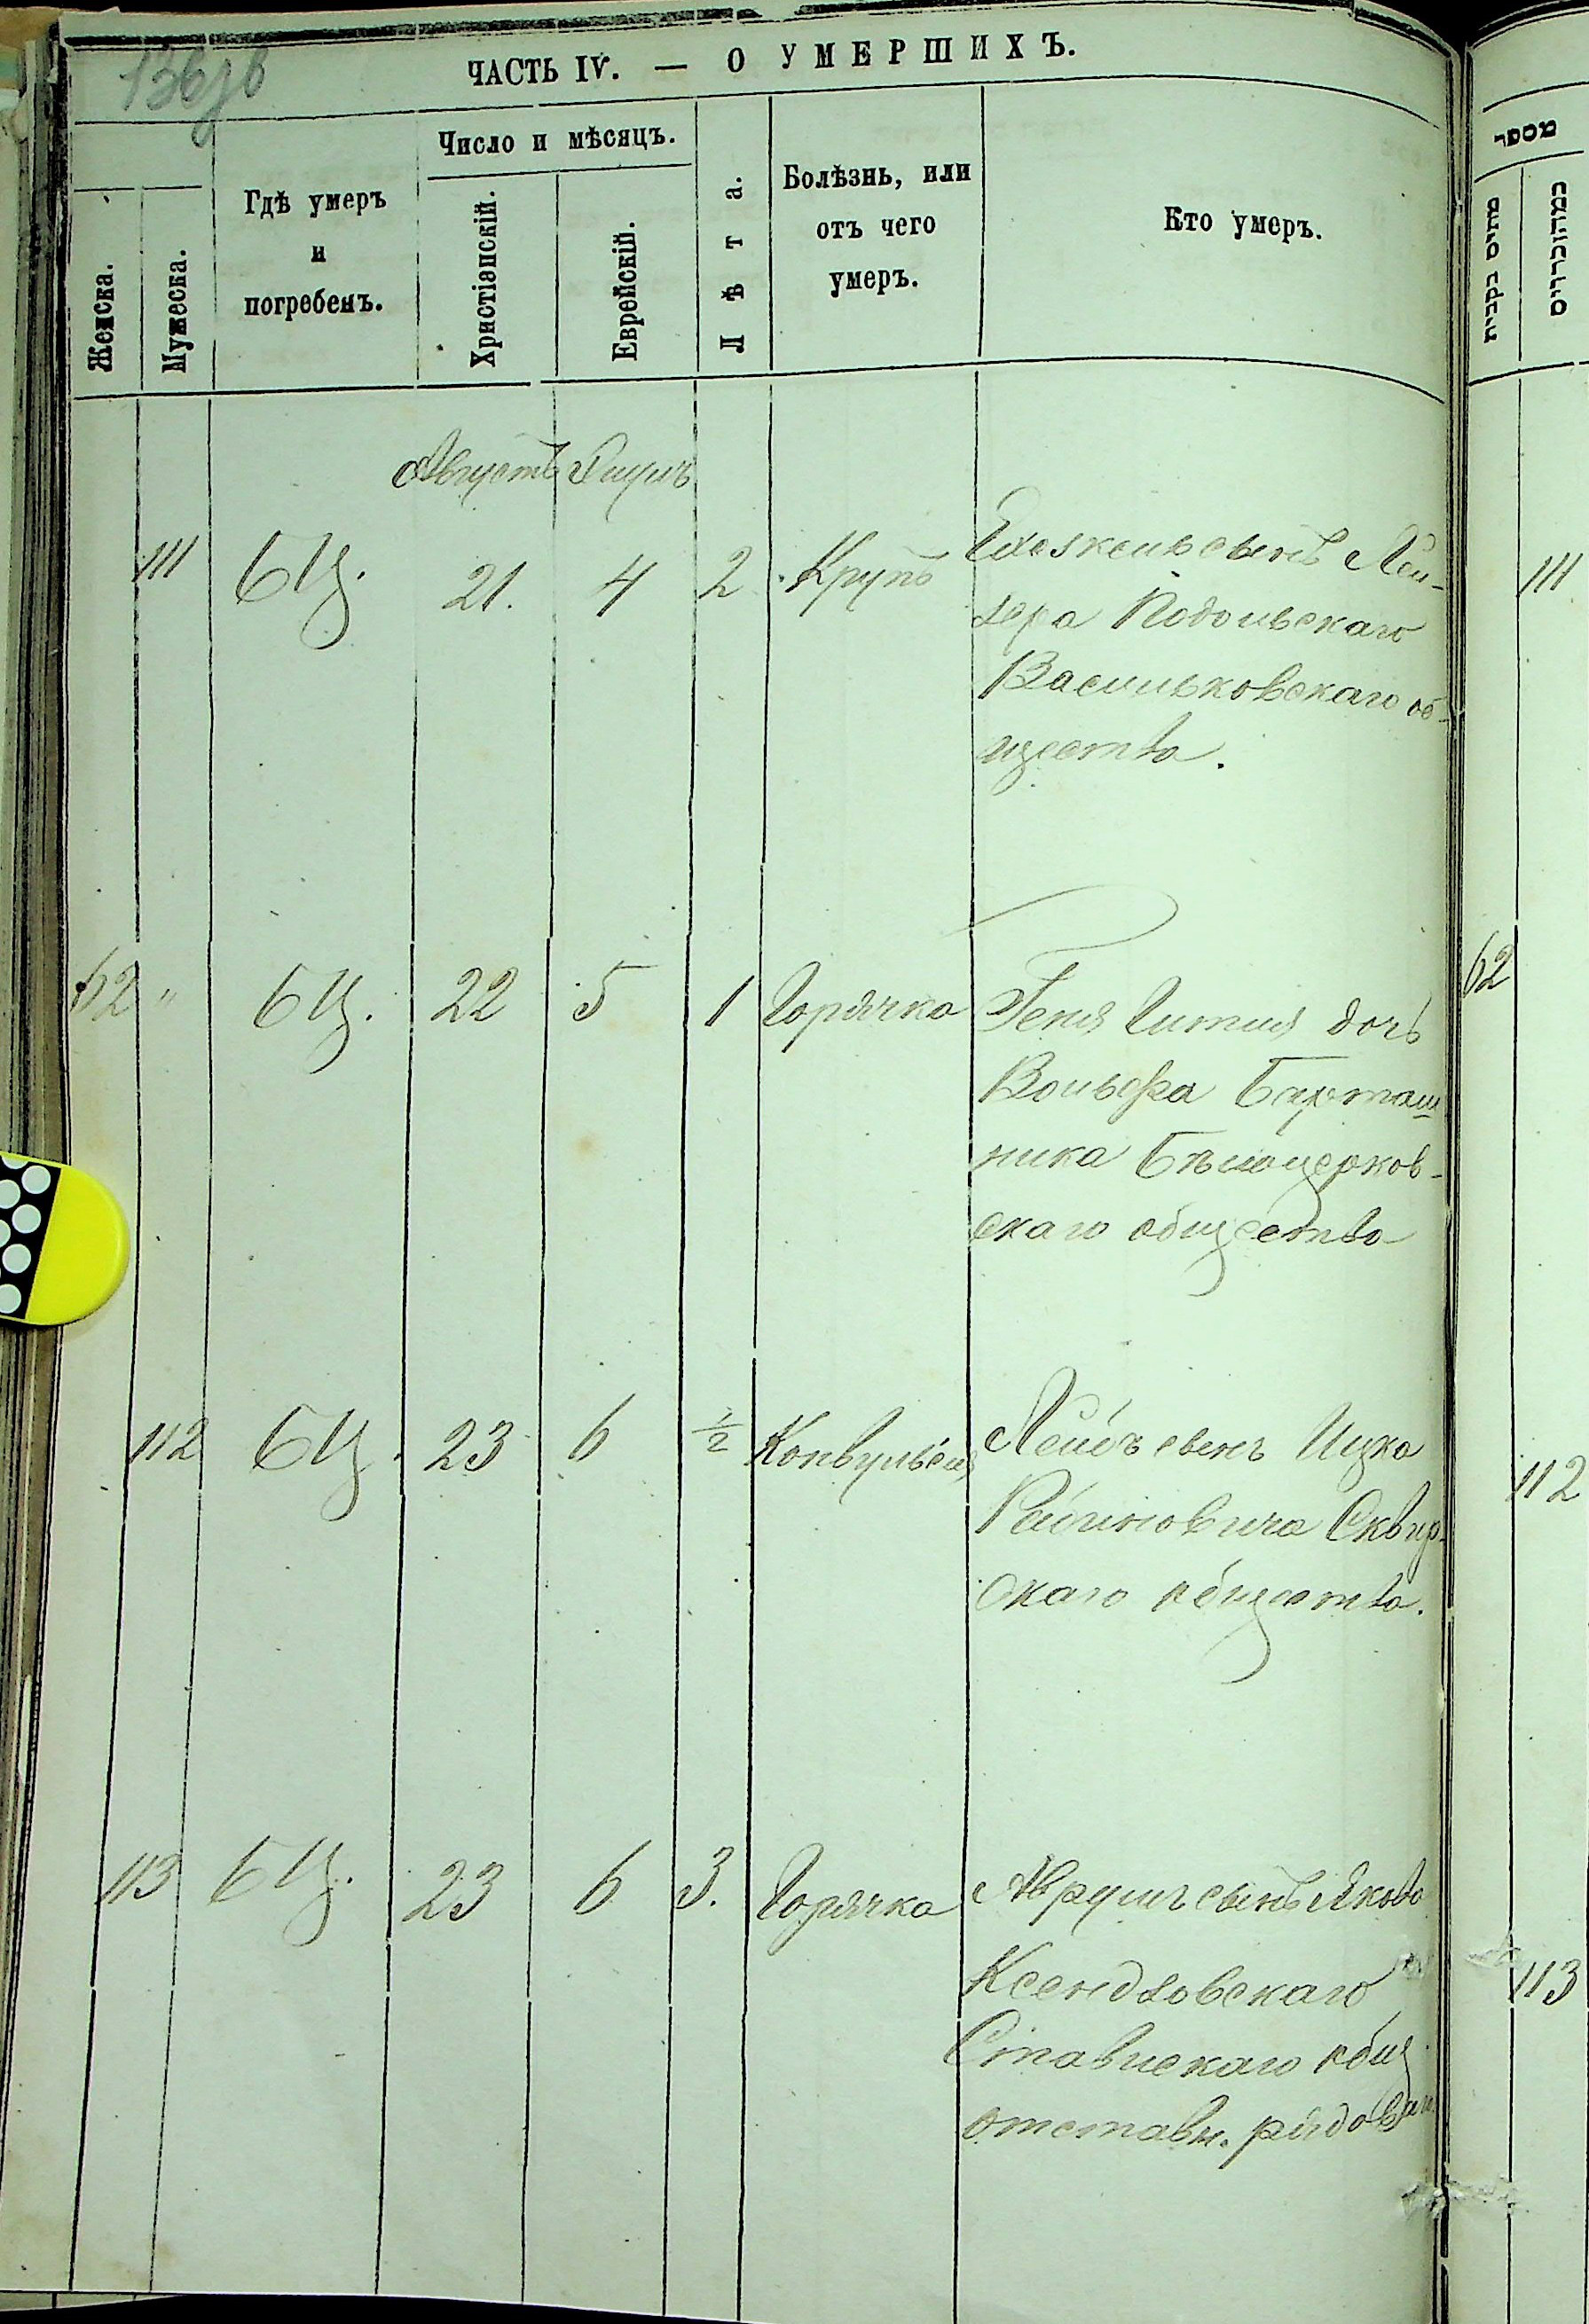 136зв
ЧАСТЬ IV. — О УМЕРШИХЪ.
Женска.
Мужеска.
Гдѣ умеръ
и
погребенъ.
Число и мѣсяцъ.
Христіанскій.
Еврейскій.
Лѣта.
Болѣзнь, или
отъ чего
умеръ.
Кто умеръ.
מספר
מתים נקבות
Августъ
111 БЦ. 21. 4 2 Крупъ Ехезкель сынъ Лей-
зера Подольскаго
Васильковскаго об-
щества.
111
62 " БЦ. 22 5 1 Горячка Геня Гитля дочь
Вольфа Барташ
ника Бѣлоцерков-
скаго общества
62
112 БЦ. 23 6 1/2 Конвульсія Лейбъ сынъ Ицка
Рабиновича Сквир-
скаго общества.
112
113 БЦ. 23 6 3. Горячка Аврумъ сынъ Якова
Ксендзовскаго
Ставискаго общ
отставн. рядов
113